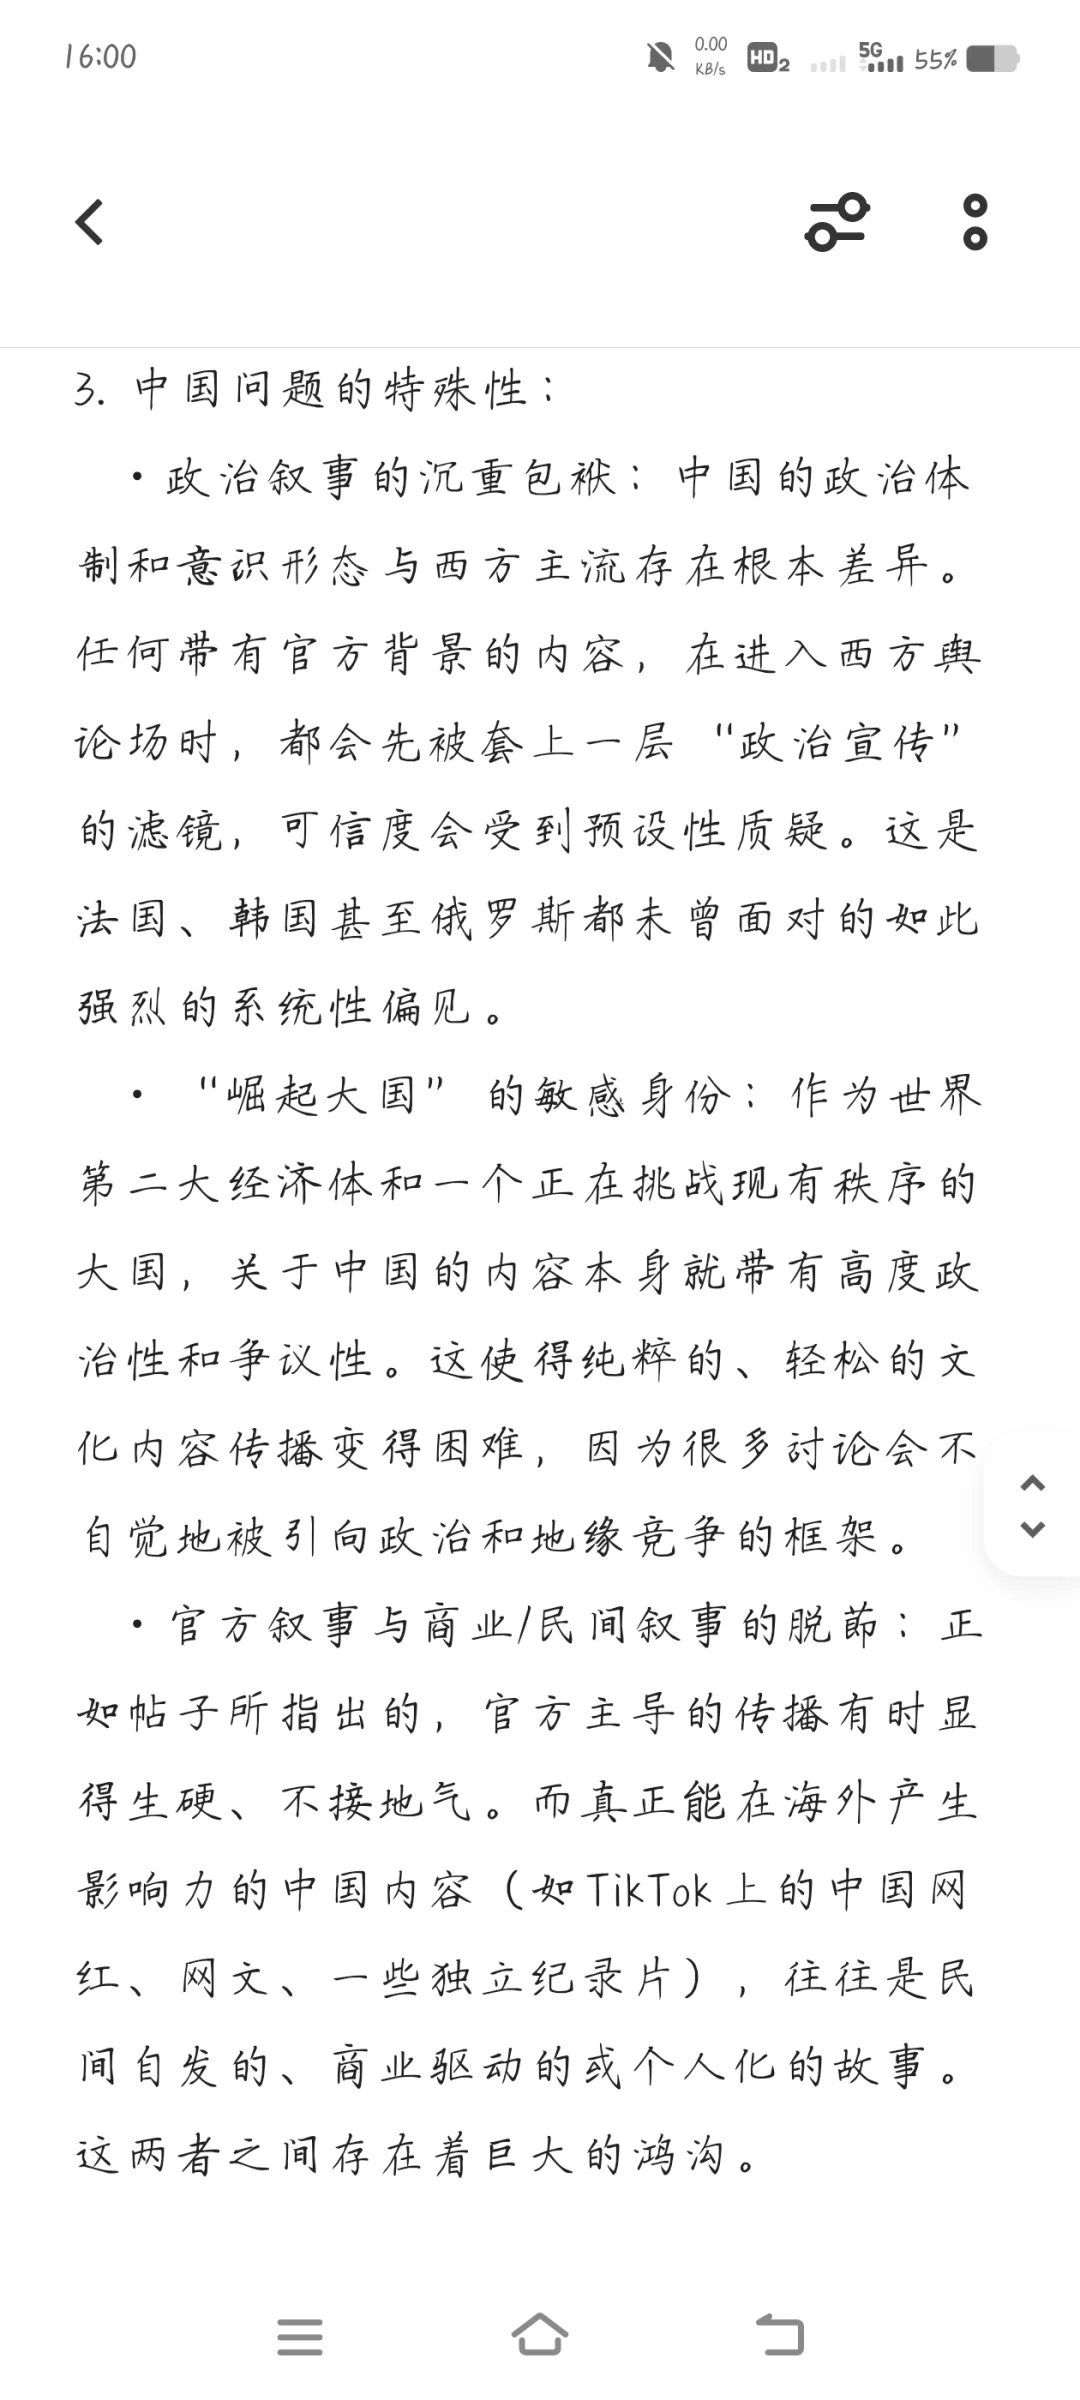 16:00
0.00
KB/s
HD 2
5G
55%
3. 中国问题的特殊性：
·政治叙事的沉重包袱：中国的政治体
制和意识形态与西方主流存在根本差异。
任何带有官方背景的内容，在进入西方舆
论场时，都会先被套上一层“政治宣传”
的滤镜，可信度会受到预设性质疑。这是
法国、韩国甚至俄罗斯都未曾面对的如此
强烈的系统性偏见。
·“崛起大国” 的敏感身份：作为世界
第二大经济体和一个正在挑战现有秩序的
大国，关于中国的内容本身就带有高度政
治性和争议性。这使得纯粹的、轻松的文
化内容传播变得困难，因为很多讨论会不
自觉地被引向政治和地缘竞争的框架。
·官方叙事与商业/民间叙事的脱节：正
如帖子所指出的，官方主导的传播有时显
得生硬、不接地气。而真正能在海外产生
影响力的中国内容（如TikTok上的中国网
红、网文、一些独立纪录片），往往是民
间自发的、商业驱动的或个人化的故事。
这两者之间存在着巨大的鸿沟。